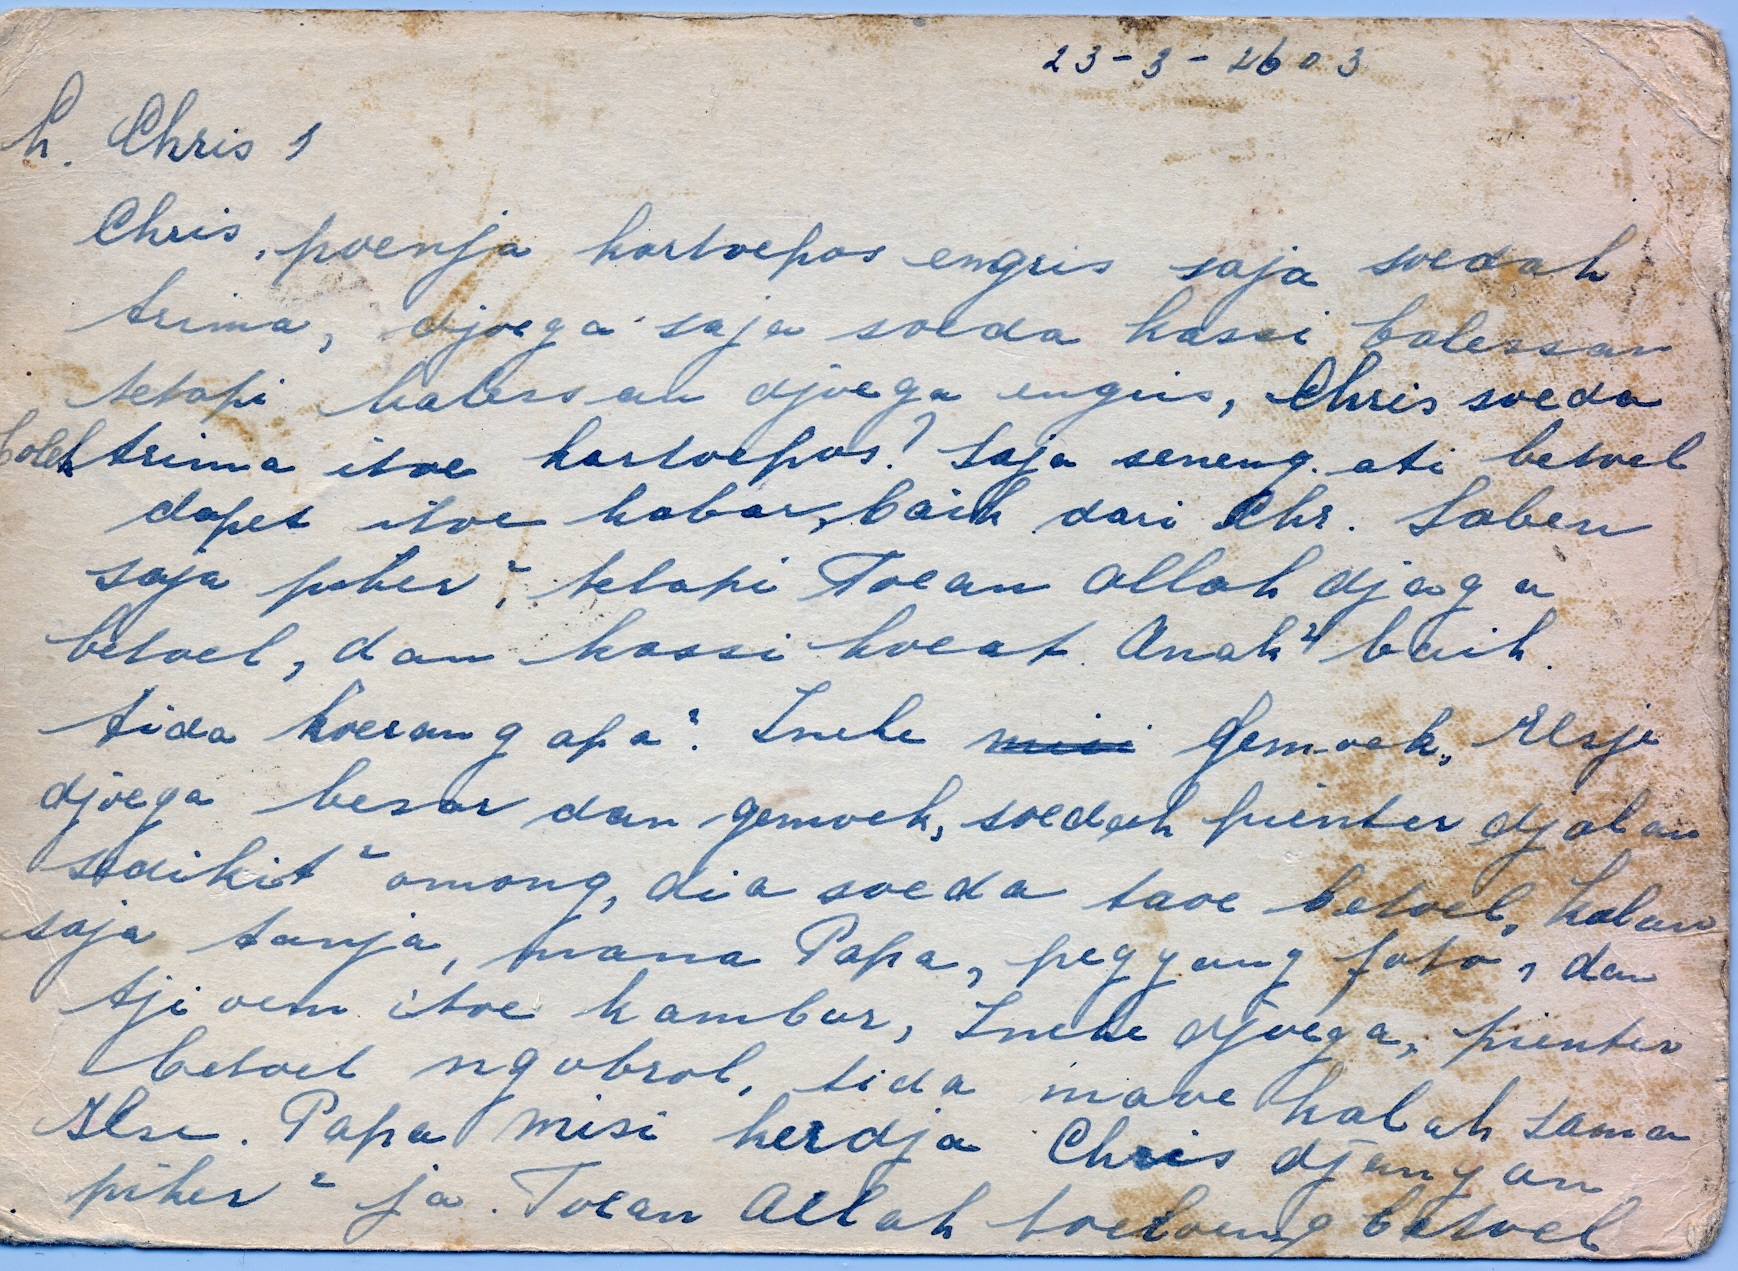 23-3-2603
h. Chris,
Chris, poenja kartoepos engris saja soedah
trima, djoega saja soeda kassi balessan
tetapi balessan djoega engris, Chris soeda
boleh trima itoe kartoepos? Saja seneng ati betoel
dapet itoe kabar, baik dari Chr. Saben
saja piker², tetapi Toean Allah djaga
betoel, dan kassi koeat. Anak² baik.
tida koerang apa². Ineke misi gemoek, Elsje
djoega besar dan gemoek, soedah pienter djalan
sedikit² omong, dia soeda taoe betoel, kalau
saja tanja, mana Papa, peggang foto, dan
tjioem itoe kambar, Ineke djoega, pienter
betoel ngobrol, tida maoe kalah sama
Else. Papa misi kerdja Chris djangan
piker² ja. Toean Allah toeloeng betoel